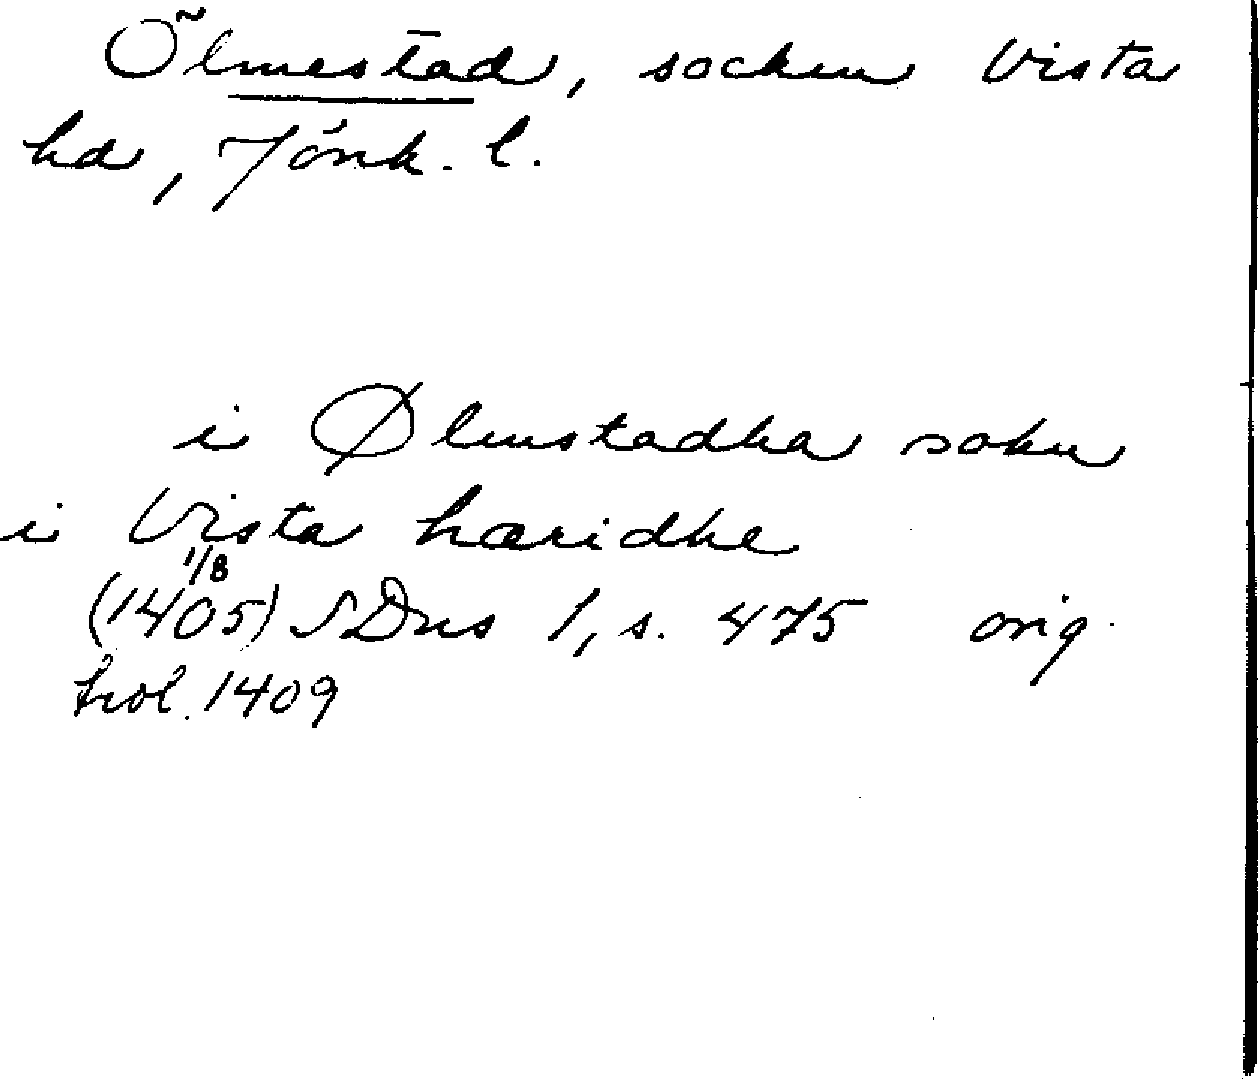 Ölmestad, socken Vista
hd, Jönk. l.
i Ølmstadha sokn
i Vista hæridhe
1/8
(1405) SDns 1, s. 475 orig.
trol. 1409